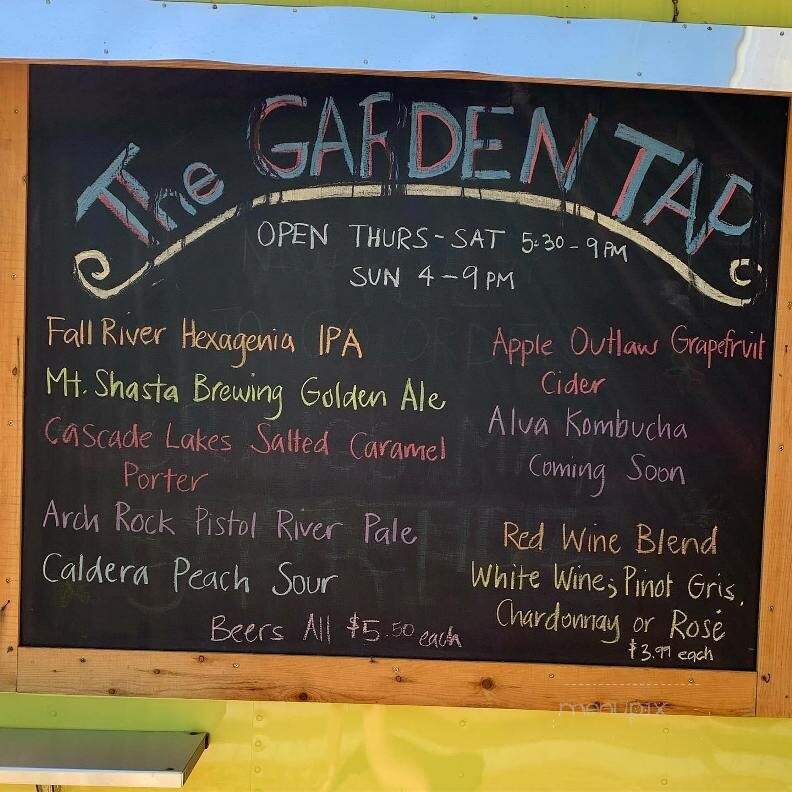 The GARDEN TAP
OPEN THURS-SAT 5:30-9PM
SUN 4-9PM
Fall River Hexagenia IPA
Mt. Shasta Brewing Golden Ale
Cascade Lakes Salted Caramel
Porter
Arch Rock Pistol River Pale
Caldera Peach Sour
Beers All $5.50 each
Apple Outlaw Grapefruit
Cider
Alva Kombucha
Coming Soon
Red Wine Blend
White Wine; Pinot Gris,
Chardonnay or Rosé
$3.99 each
menupix